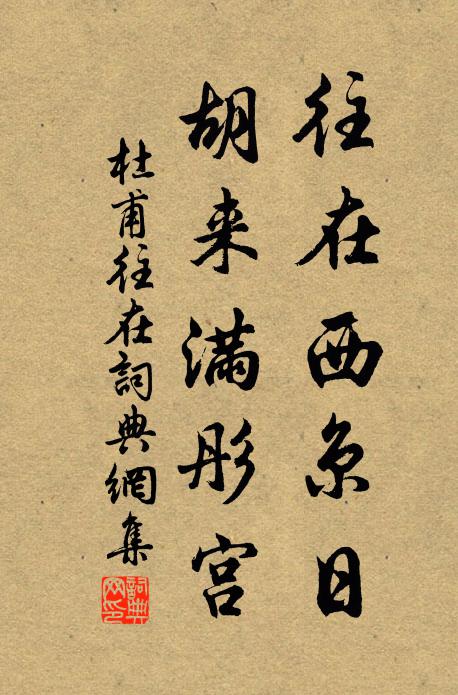 往在西京日
胡来满彤宫
杜甫往在詞典網集
詞典网印